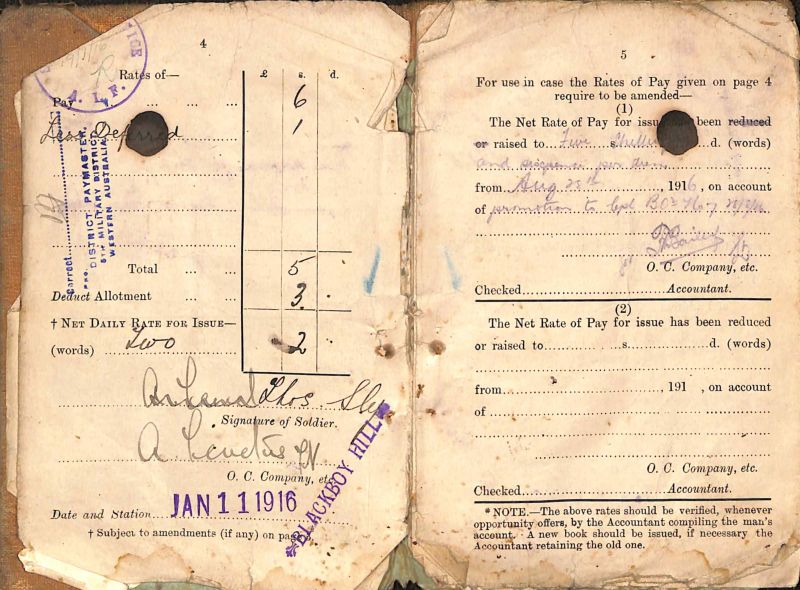 4
Rates of—
£ s. d.
Pay ... ... ... 6
Less Deferred 1
A. I. F.
Correct
PRO. DISTRICT PAYMASTER,
5TH MILITARY DISTRICT
WESTERN AUSTRALIA
Total ... ... 5
Deduct Allotment ... ... 3 .
† NET DAILY RATE FOR ISSUE—
(words) Two 2 .
Thos.
Signature of Soldier.
O. C. Company, etc
Date and Station JAN 11 1916
BLACKBOY HILL
† Subject to amendments (if any) on page
5
For use in case the Rates of Pay given on page 4
require to be amended—
(1)
The Net Rate of Pay for issue been reduced
or raised to Five s. d. (words)
and sixpence per diem
from Aug 28th, 1916, on account
of promotion to Cpl
O. C. Company, etc.
Checked Accountant.
(2)
The Net Rate of Pay for issue has been reduced
or raised to s. d. (words)
from , 191 , on account
of
O. C. Company, etc.
Checked Accountant.
* NOTE.—The above rates should be verified, whenever
opportunity offers, by the Accountant compiling the man's
account. A new book should be issued, if necessary the
Accountant retaining the old one.